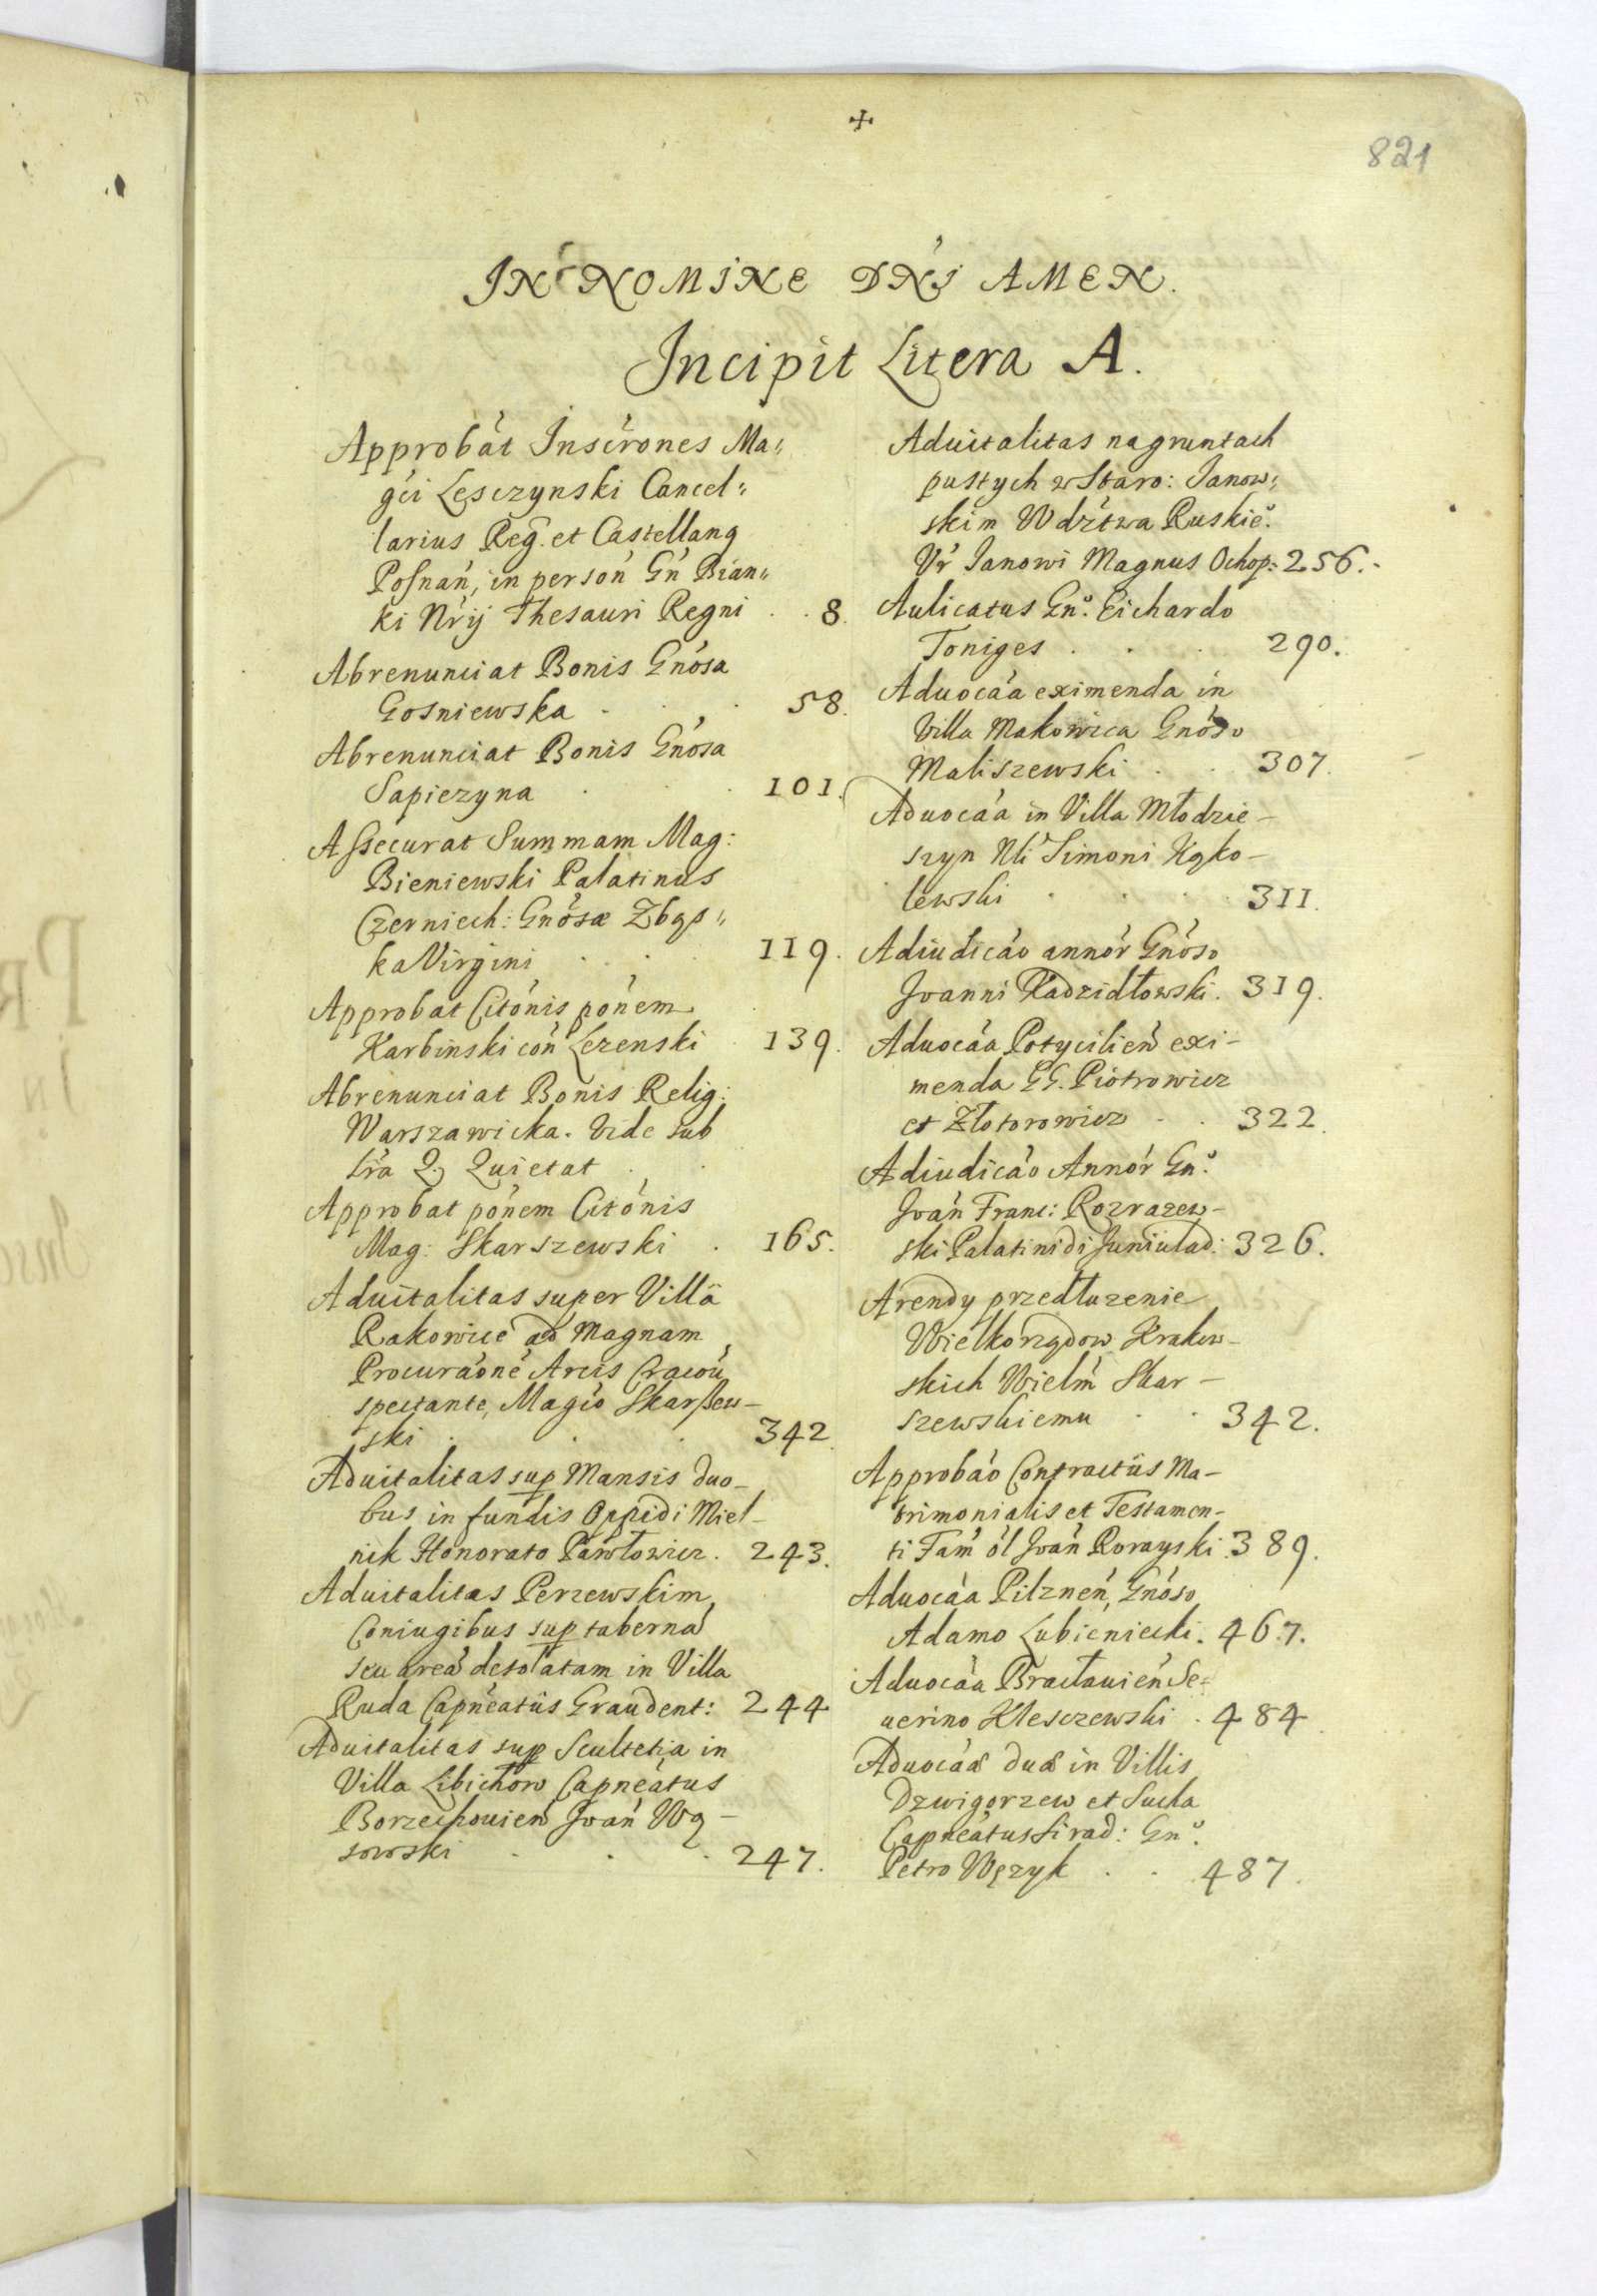 821
IN NOMINE DŃI AMEN.
Incipit Litera A.
Approbát Inscŕones Ma„
gći Lesczynski Cancel„
larius Reg. et Castellang
Posnań, in persoń Gń Bian„
ki Nŕij Thesauri Regni . . 8.
Abrenunciat Bonis Gńosa
Gosniewska . . . 58.
Abrenunciat Bonis Gńosa
Sapiezyna . . 101.
Assecurat Summam Mag:
Bieniewski Palatinus
Czerniech: Gńosæ Zbąs„
ka Virgini . . . 119.
Approbat Citónis pónem
Karbinski coń Lezenski 139.
Abrenunciat Bonis Relig:
Warszawicka. Vide sub
Lŕa Q. Quietat . .
Approbat pónem Citónis
Mag: Skarszewski . 165.
Aduitalitas super Villã
Rakowice ad Magnam
Procuraóne Arcis Cracoú
spectante, Magćo Skarßew-
ski . . . 342.
Aduitalitas sup Mansis duo-
bus in fundis Oppidi Miel-
nik Honorato Pawłowicz. 243.
Aduitalitas Perzewskim
Coniugibus sup taberna
seu area desolatam in Villa
Ruda Capneatûs Graudent: 244
Aduitalitas sup Scultetia in
Villa Libichow Capneátus
Borzechouien Joań Wą-
sowski . . . 247.
Aduitalitas na gruntach
pustych w Staro: Janow„
skim Wdztwa Ruskie°.
Vr Janowi Magnus Ochop: 256.-
Aulicatus Gn°. Eichardo
Toniges . . . 290.
Aduocáa eximenda in
Villa Makowica Gnóso
Maliszewski . . 307.
Aduocáa in Villa Młodzie-
szyn Nli Simoni Kąko-
lewski . . . 311.
Adiudicáo annór Gnóso
Joanni Kadzidłowski. 319.
Aduocáa Potycilień exi-
menda GG. Piotrowicz
et Złotorowicz . . 322.
Adiudicáo Annór Gn°.
Joań Franc: Rozrazew-
ski Palatinidi Juniulad: 326.
Arendy przedłuzenie
Wielkorządow Krakow-
skich Wielḿ Skar-
szewskiemu . . 342.
Approbáo Contractûs Ma-
trimonialis et Testamen-
ti Fam ól Joań Rorayski. 389.
Aduocáa Pilzneń, Gnóso
Adamo Lubieniecki. 467.
Aduocáa Bracłauień Se-
uerino Kleszczewski . 484.
Aduocáæ duæ in Villis
Dzwigorzew et Sucha
Capneátus Sirad: Gn°.
Petro Wężyk . . 487.